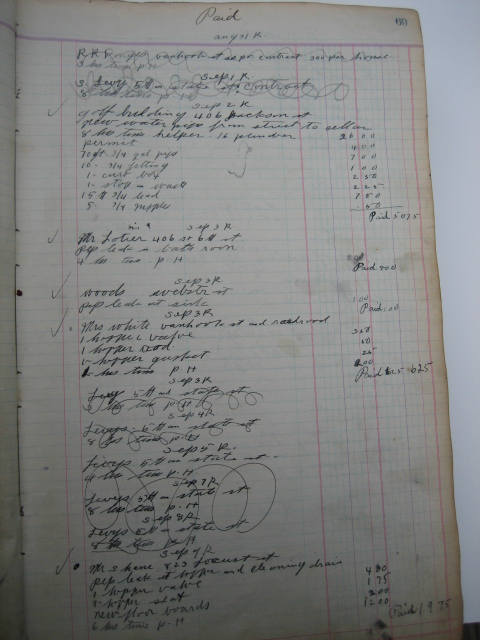 Paid
60
aug 31 R.
R R Ronges vanhook st as per contract 300 per house
3 hrs time p H
sep 1 R
3 Levy 5th an state st contract
8 hrs time p H
sep 2 R
golf building 406 Jackson st
new water pipe from street to cellar
8 hrs time helper - 16 plumber 26 00
permit 4 00
70 ft 3/4 gal pipe 7 00
10 - 3/4 fitting 1 00
1 - curt box 2 50
1 - stop a wast 2 25
15 ft 3/4 lead 7 50
5 3/4 nipple 50
Paid 50 75
sep 3 R
Mr Lotier 406 so 6th st
rep leak in bath room
4 hrs time p. H
Paid 4 00
sep 3 R
woods webster st
rep leak at sink 1 00
Paid 1 00
sep 3 R
Mrs white vanhook st and railroad
1 hopper valve 3 50
1 hopper rod 50
1 hopper gasket 25
2 hrs time p. H 2 00
Paid 6 25
sep 3 R
Levy 5th an state st
8 hrs time p H
sep 4 R
Levys 5th an state st
8 hrs time p. H
sep 5 R.
Levys 5th an state st
4 hrs time p. H
sep 7 R
Levys 5th an state st
8 hrs time p. H
sep 8 R
Levys 5th an state st
8 hrs time p. H
sep 9 R
Mr Shane 823 Locust st
rep leak at hopper and cleaning drain
1 hopper valve 4 00
1 hopper seat 1 75
new floor boards 2 00
6 hrs time p. H 12 00
Paid 19 75